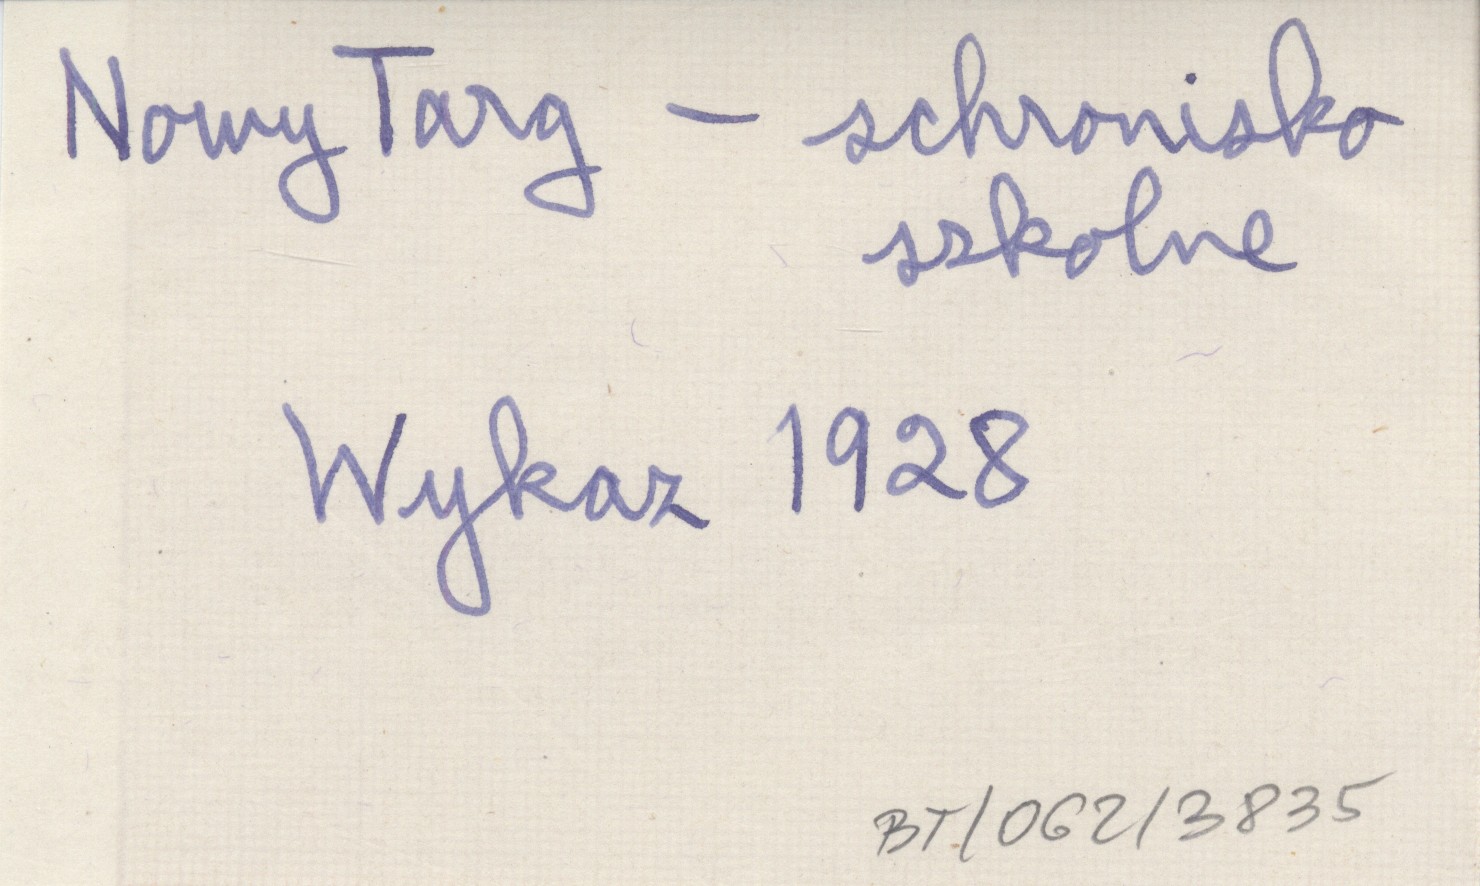 Nowy Targ – schronisko
szkolne
Wykaz 1928
BT/062/3835